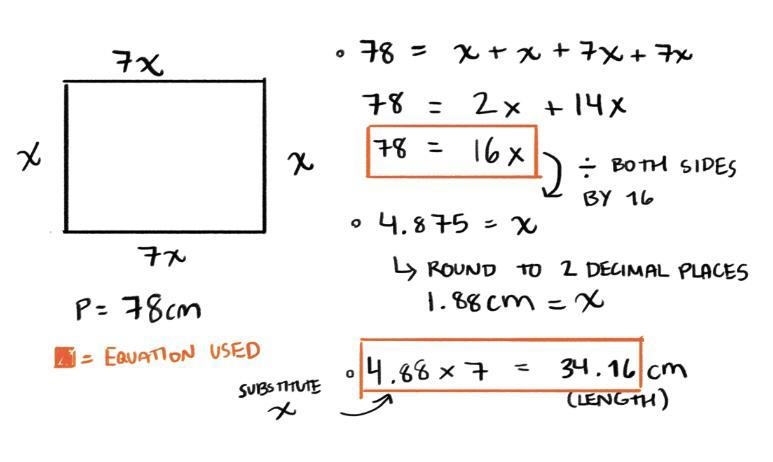 7x
x
x
7x
P = 78cm
= EQUATION USED
• 78 = x + x + 7x + 7x
78 = 2x + 14x
78 = 16x
÷ BOTH SIDES
BY 16
• 4.875 = x
↳ ROUND TO 2 DECIMAL PLACES
1.88cm = x
• 4.88 x 7 = 34.16 cm
(LENGTH)
SUBSTITUTE
x